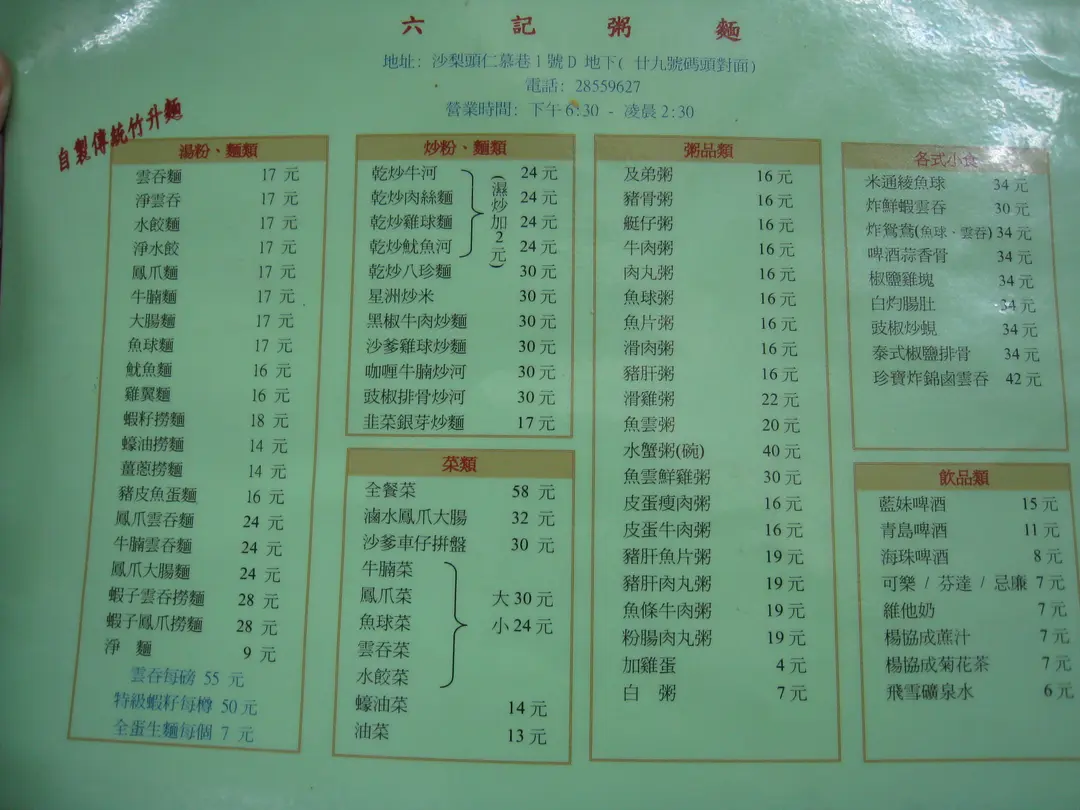 六記粥麵
地址: 沙梨頭仁慕巷1號D 地下( 廿九號碼頭對面)
電話: 28559627
營業時間: 下午6:30 - 凌晨2:30
自製傳統竹升麵
湯粉、麵類
雲吞麵 17 元
淨雲吞 17 元
水餃麵 17 元
淨水餃 17 元
鳳爪麵 17 元
牛腩麵 17 元
大腸麵 17 元
魚球麵 17 元
魷魚麵 16 元
雞翼麵 16 元
蝦籽撈麵 18 元
蠔油撈麵 14 元
薑蔥撈麵 14 元
豬皮魚蛋麵 16 元
鳳爪雲吞麵 24 元
牛腩雲吞麵 24 元
鳳爪大腸麵 24 元
蝦子雲吞撈麵 28 元
蝦子鳳爪撈麵 28 元
淨 麵 9 元
雲吞每磅 55 元
特級蝦籽每樽 50元
全蛋生麵每個 7 元
炒粉、麵類
乾炒牛河 24 元
乾炒肉絲麵 24 元
乾炒雞球麵 24 元
乾炒魷魚河 24 元
(濕炒加2元)
乾炒八珍麵 30 元
星洲炒米 30 元
黑椒牛肉炒麵 30 元
沙爹雞球炒麵 30 元
咖喱牛腩炒河 30 元
豉椒排骨炒河 30 元
韭菜銀芽炒麵 17 元
菜類
全餐菜 58 元
滷水鳳爪大腸 32 元
沙爹車仔拼盤 30 元
牛腩菜
鳳爪菜 大30元
魚球菜 小24元
雲吞菜
水餃菜
蠔油菜 14 元
油菜 13 元
粥品類
及弟粥 16 元
豬骨粥 16 元
艇仔粥 16 元
牛肉粥 16 元
肉丸粥 16 元
魚球粥 16 元
魚片粥 16 元
滑肉粥 16 元
豬肝粥 16 元
滑雞粥 22 元
魚雲粥 20 元
水蟹粥(碗) 40 元
魚雲鮮雞粥 30 元
皮蛋瘦肉粥 16 元
皮蛋牛肉粥 16 元
豬肝魚片粥 19 元
豬肝肉丸粥 19 元
魚條牛肉粥 19 元
粉腸肉丸粥 19 元
加雞蛋 4 元
白 粥 7 元
各式小食
米通綾魚球 34 元
炸鮮蝦雲吞 30 元
炸鴛鴦(魚球．雲吞) 34 元
啤酒蒜香骨 34 元
椒鹽雞塊 34 元
白灼腸肚 34 元
豉椒炒蜆 34 元
泰式椒鹽排骨 34 元
珍寶炸錦鹵雲吞 42 元
飲品類
藍妹啤酒 15 元
青島啤酒 11 元
海珠啤酒 8 元
可樂 / 芬達 / 忌廉 7 元
維他奶 7 元
楊協成蔗汁 7 元
楊協成菊花茶 7 元
飛雪礦泉水 6 元